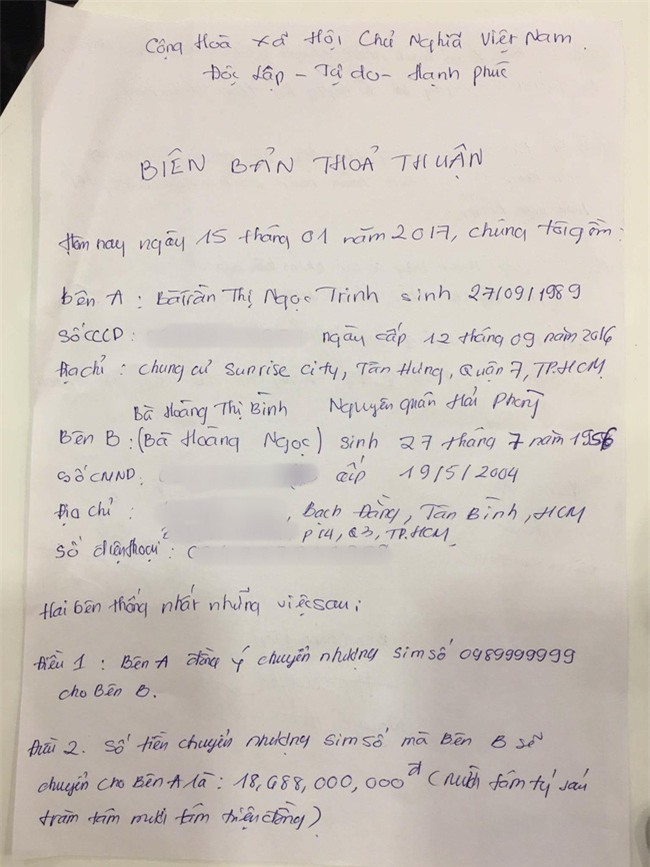 Cộng Hoà Xã Hội Chủ Nghĩa Việt Nam.
Độc Lập - Tự do - Hạnh phúc
BIÊN BẢN THOẢ THUẬN
Hôm nay ngày 15 tháng 01 năm 2017, chúng tôi gồm:
Bên A : Bà Trần Thị Ngọc Trinh sinh 27/09/1989
Số CCCD: ngày cấp 12 tháng 09 năm 2016
Địa chỉ : chung cư Sunrise city, Tân Hưng, Quận 7, TP.HCM
Bà Hoàng Thị Bình Nguyên quán Hải Phòng
Bên B : (Bà Hoàng Ngọc) sinh 27 tháng 7 năm 1956
Số CMND: cấp 19/5/2004
Địa chỉ : , Bạch Đằng, Tân Bình, HCM
P14, Q3, TP.HCM
Số điện thoại :
Hai bên thống nhất những việc sau:
Điều 1 : Bên A đồng ý chuyển nhượng sim số 0989999999
cho Bên B.
Điều 2. Số tiền chuyển nhượng sim số mà Bên B sẽ
chuyển cho Bên A là : 18,688,000,000đ (mười tám tỷ sáu
trăm tám mươi tám triệu đồng)